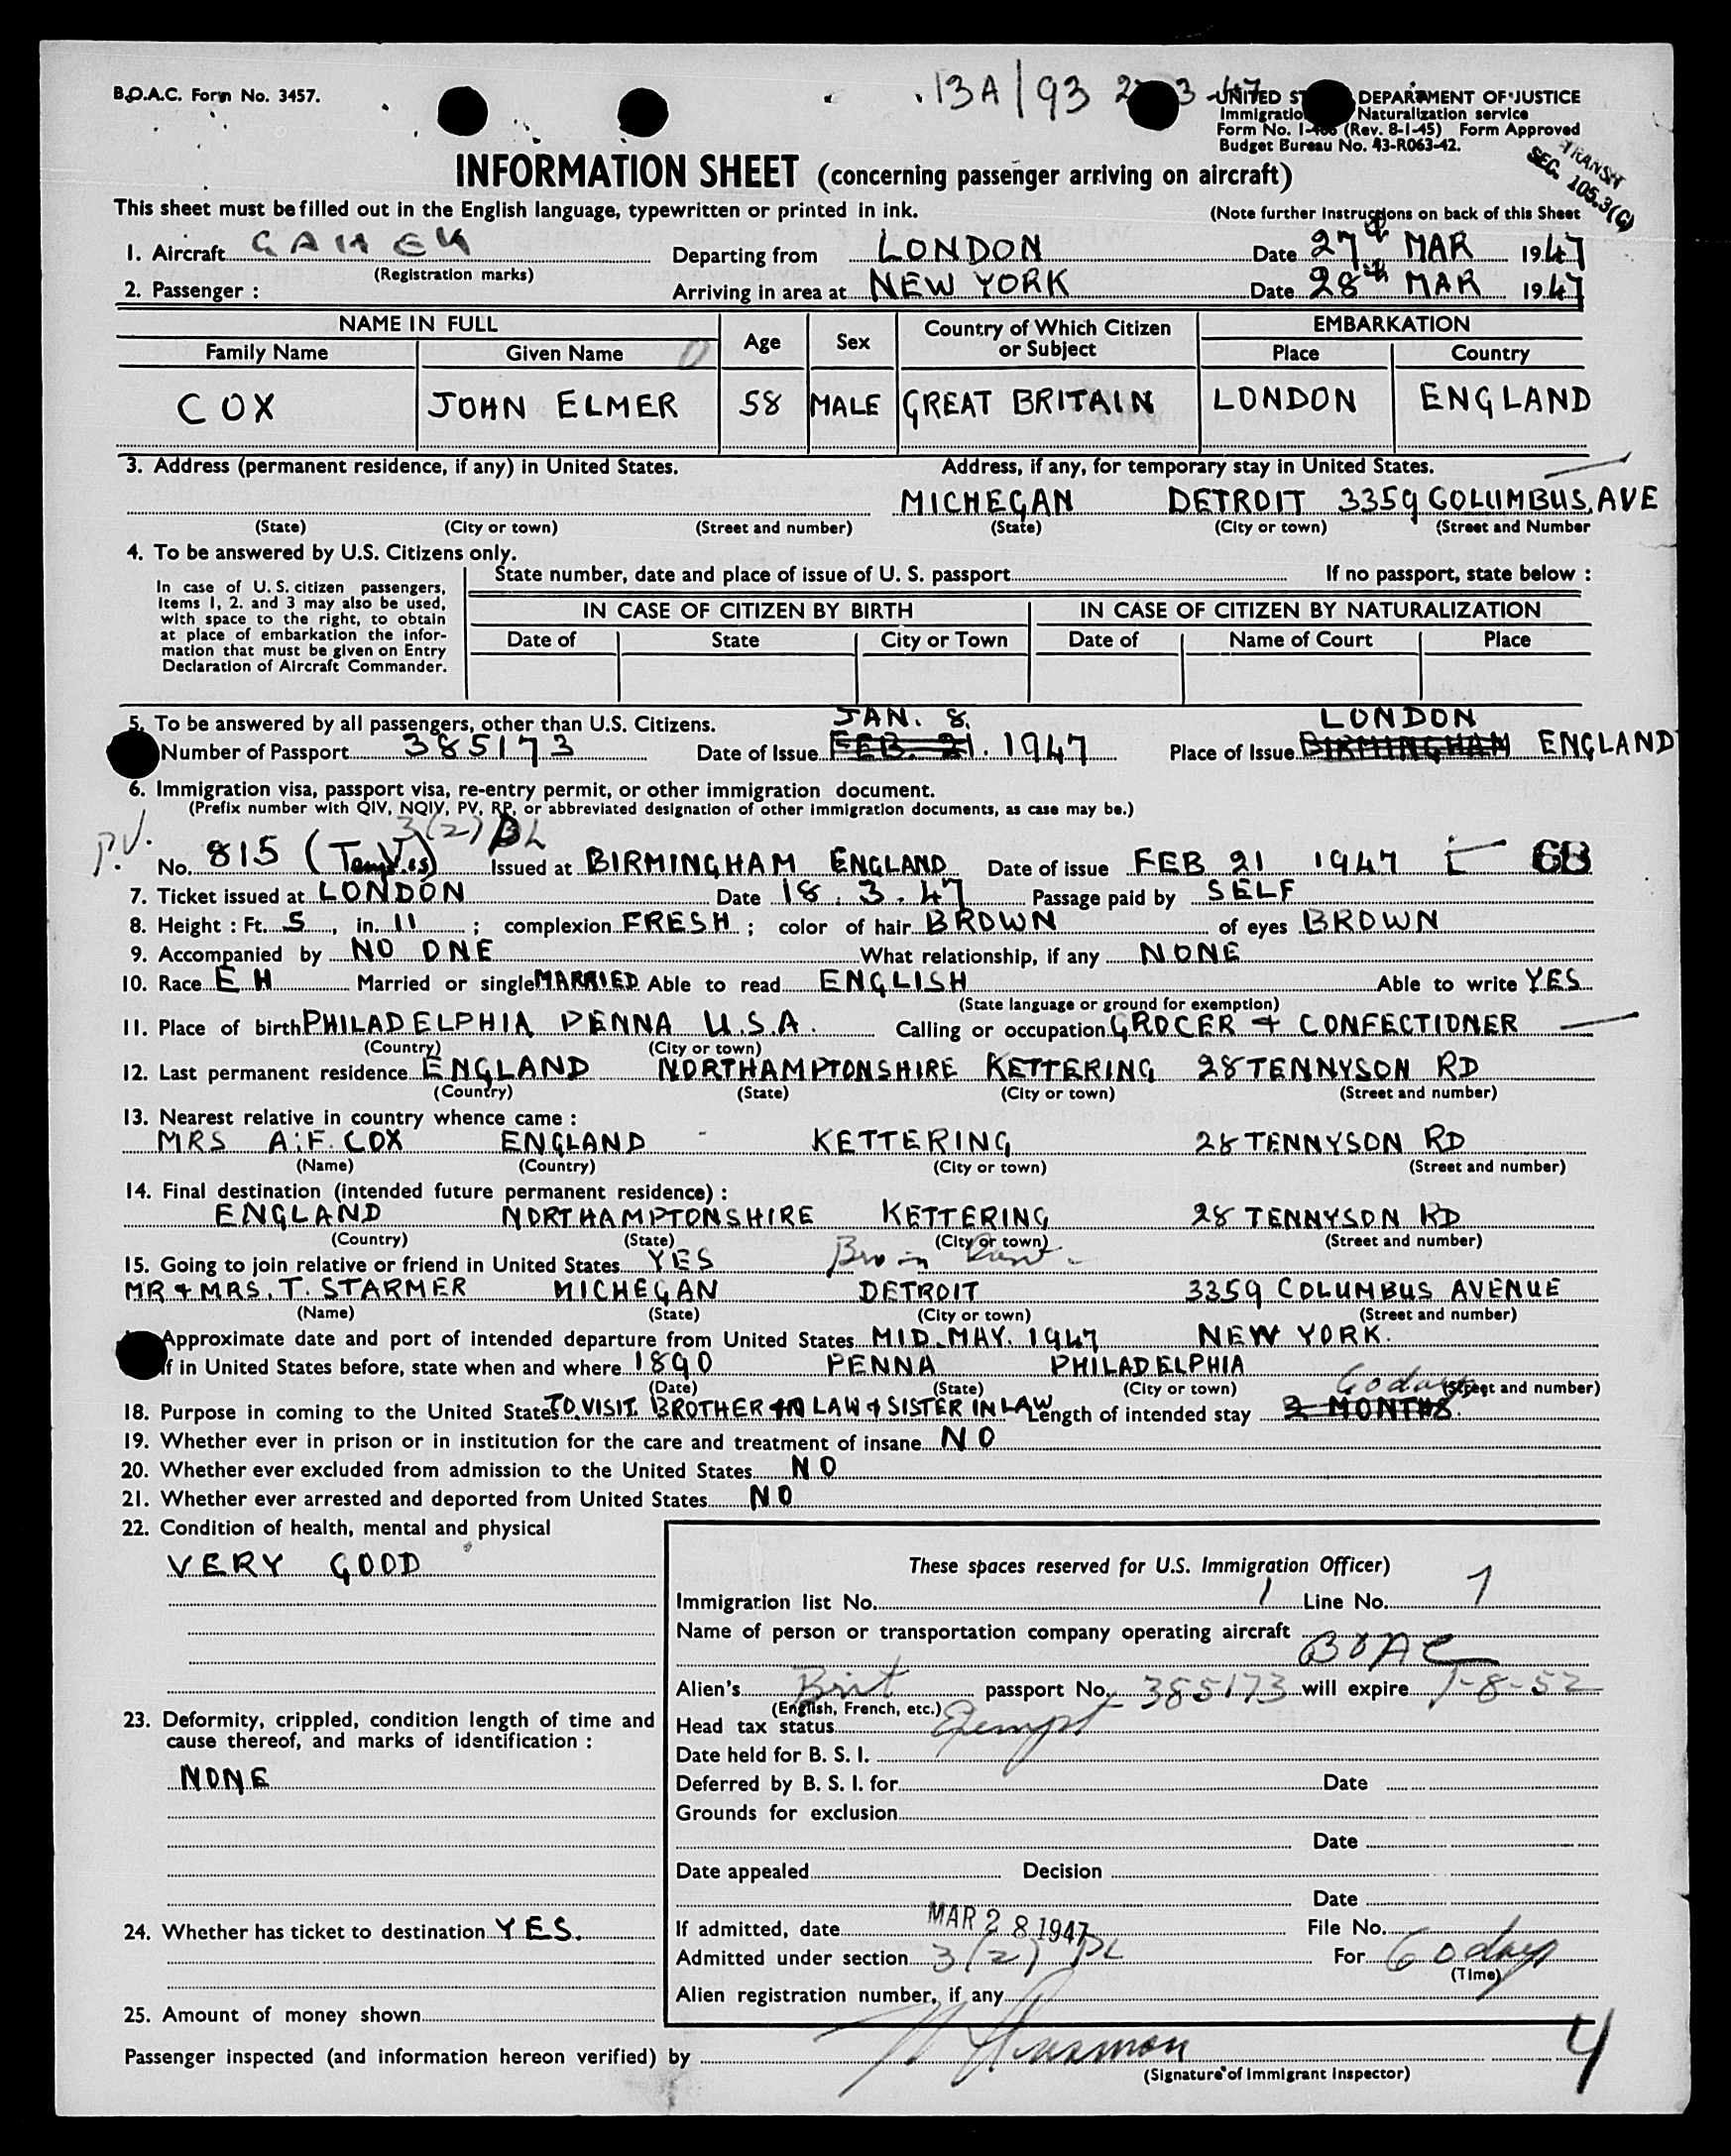 B.O.A.C. Form No. 3457.
13A/93 3-47
UNITED ST DEPARTMENT OF JUSTICE
Immigratio Naturalization service
Form No. I-466 (Rev. 8-1-45) Form Approved
Budget Bureau No. 43-R063-42.
TRANSIT
SEC. 105.3(G)
INFORMATION SHEET (concerning passenger arriving on aircraft)
This sheet must be filled out in the English language, typewritten or printed in ink. (Note further instructions on back of this Sheet
1. Aircraft Departing from LONDON Date 27th MAR 1947
(Registration marks)
2. Passenger : Arriving in area at NEW YORK Date 28th MAR 1947
NAME IN FULL Age Sex Country of Which Citizen or Subject EMBARKATION
Family Name Given Name Place Country
COX JOHN ELMER 58 MALE GREAT BRITAIN LONDON ENGLAND
3. Address (permanent residence, if any) in United States. Address, if any, for temporary stay in United States.
MICHEGAN DETROIT 3359 COLUMBUS, AVE
(State) (City or town) (Street and number) (State) (City or town) (Street and Number
4. To be answered by U.S. Citizens only.
In case of U.S. citizen passengers,
items 1, 2. and 3 may also be used,
with space to the right, to obtain
at place of embarkation the infor-
mation that must be given on Entry
Declaration of Aircraft Commander.
State number, date and place of issue of U. S. passport If no passport, state below :
IN CASE OF CITIZEN BY BIRTH IN CASE OF CITIZEN BY NATURALIZATION
Date of State City or Town Date of Name of Court Place
5. To be answered by all passengers, other than U.S. Citizens. JAN. 8. LONDON
Number of Passport 385173 Date of Issue FEB. 21. 1947 Place of Issue BIRMINGHAM ENGLAND
6. Immigration visa, passport visa, re-entry permit, or other immigration document.
(Prefix number with QIV, NQIV, PV, RP, or abbreviated designation of other immigration documents, as case may be.)
3(2) DL
P.V. No. 815 (Tem V.is) Issued at BIRMINGHAM ENGLAND Date of issue FEB 21 1947 68
7. Ticket issued at LONDON Date 18.3.47 Passage paid by SELF
8. Height : Ft. 5, in. 11 ; complexion FRESH ; color of hair BROWN of eyes BROWN
9. Accompanied by NO ONE What relationship, if any NONE
10. Race E H Married or single MARRIED Able to read ENGLISH Able to write YES
(State language or ground for exemption)
11. Place of birth PHILADELPHIA PENNA U.S.A. Calling or occupation GROCER + CONFECTIONER
(Country) (City or town)
12. Last permanent residence ENGLAND NORTHAMPTONSHIRE KETTERING 28 TENNYSON RD
(Country) (State) (City or town) (Street and number)
13. Nearest relative in country whence came :
MRS A.F. COX ENGLAND KETTERING 28 TENNYSON RD
(Name) (Country) (City or town) (Street and number)
14. Final destination (intended future permanent residence) :
ENGLAND NORTHAMPTONSHIRE KETTERING 28 TENNYSON RD
(Country) (State) (City or town) (Street and number)
15. Going to join relative or friend in United States YES Bro in
MR + MRS. T. STARMER MICHEGAN DETROIT 3359 COLUMBUS AVENUE
(Name) (State) (City or town) (Street and number)
Approximate date and port of intended departure from United States MID. MAY. 1947 NEW YORK.
If in United States before, state when and where 1890 PENNA PHILADELPHIA
(Date) (State) (City or town) (Street and number)
60 days
18. Purpose in coming to the United States TO VISIT BROTHER IN LAW + SISTER IN LAW Length of intended stay 2 MONTHS.
19. Whether ever in prison or in institution for the care and treatment of insane NO
20. Whether ever excluded from admission to the United States NO
21. Whether ever arrested and deported from United States NO
22. Condition of health, mental and physical
VERY GOOD
23. Deformity, crippled, condition length of time and
cause thereof, and marks of identification :
NONE
24. Whether has ticket to destination YES.
25. Amount of money shown
These spaces reserved for U.S. Immigration Officer)
Immigration list No. 1 Line No. 1
Name of person or transportation company operating aircraft
BOAC
Alien's Brit passport No. 385173 will expire 1-8-52
(English, French, etc.)
Head tax status Exempt
Date held for B. S. I.
Deferred by B. S. I. for Date
Grounds for exclusion
Date
Date appealed Decision
Date
If admitted, date MAR 28 1947 File No.
Admitted under section 3(2) DL For 60 days
(Time)
Alien registration number, if any
Passenger inspected (and information hereon verified) by
(Signature of Immigrant Inspector)
4